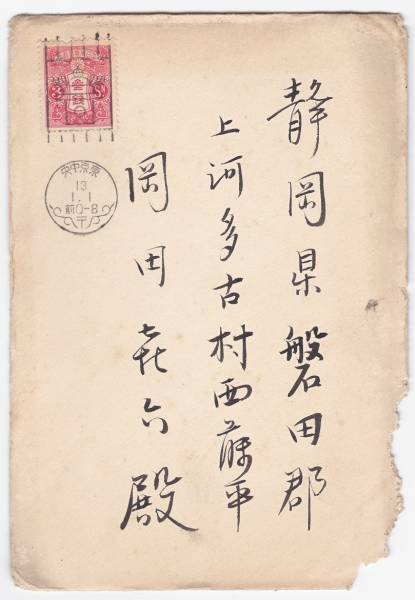 静岡県磐田郡
上河多古村西藤平
岡田㐂六殿
東京中央
13
1.1
前0-8